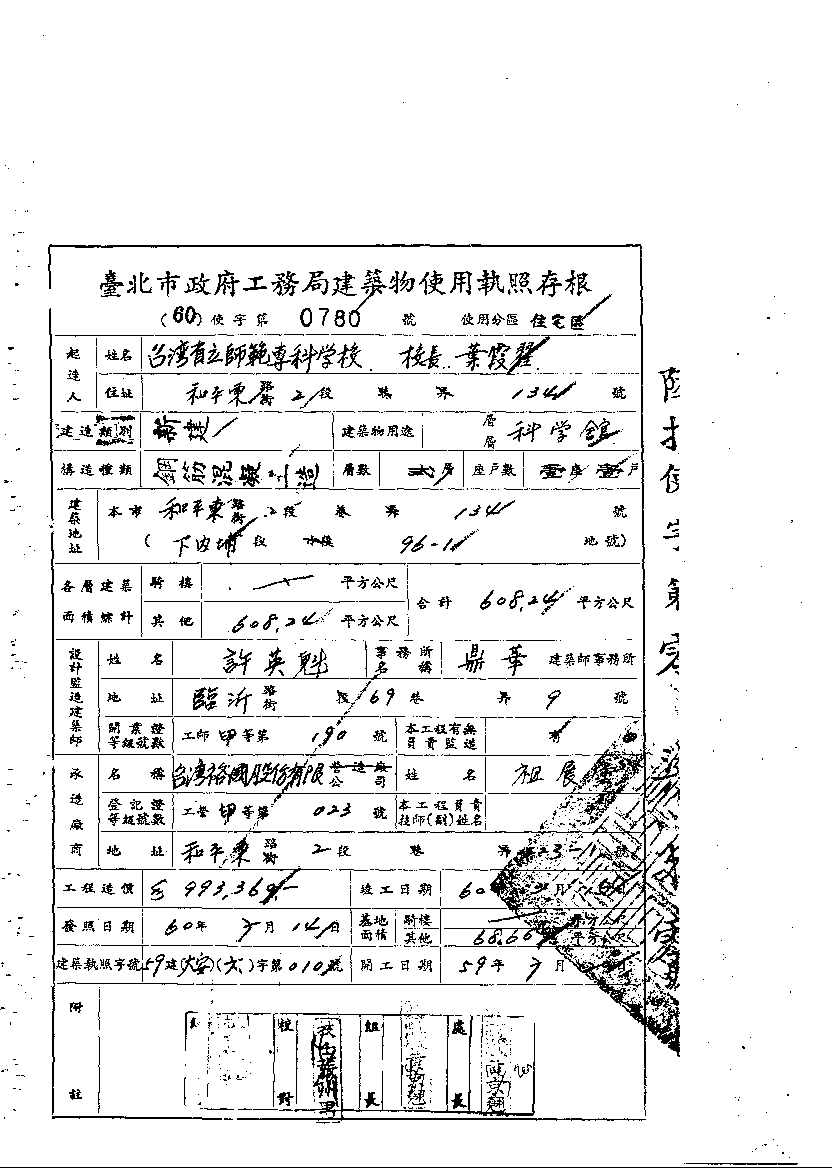 臺北市政府工務局建築物使用執照存根
(60)使字第 0780 號 使用分區 住宅區
起造人 姓名 台湾省立師範専科学校 校長 葉霞翟
住址 和平東路街 2段 巷 弄 134 號
建造類別 新建 建築物用途 層層 科学館
構造種類 鋼筋混凝土造 層數 層 座戶數 壹座壹戶
建築地址 本市 和平東路街 2段 巷 弄 134 號
(下内埔段 小段 96-1 地號)
各層建築面積綜計 騎樓 平方公尺 合計 608.24 平方公尺
其他 608.24 平方公尺
設計監造建築師 姓名 許英魁 事務所名稱 鼎華 建築師事務所
地址 臨沂路街 段 69巷 弄 9 號
開業證等級號數 工師 甲等第 190 號 本工程有無負責監造 有
承造廠商 名稱 台湾裕國股份有限營造廠公司 姓名 祖展
登記證等級號數 工營 甲等第 023 號 本工程負責技師(副)姓名
地址 和平東路街 2段 巷 弄 23-1 號
工程造價 993,369.- 竣工日期 60 月
發照日期 60年 月 14日 基地面積 騎樓 平方公尺
其他 68.66 平方公尺
建築執照字號 59建 字第010號 開工日期 59年 月
附註 校對 組長 處長
陸拾使字第零